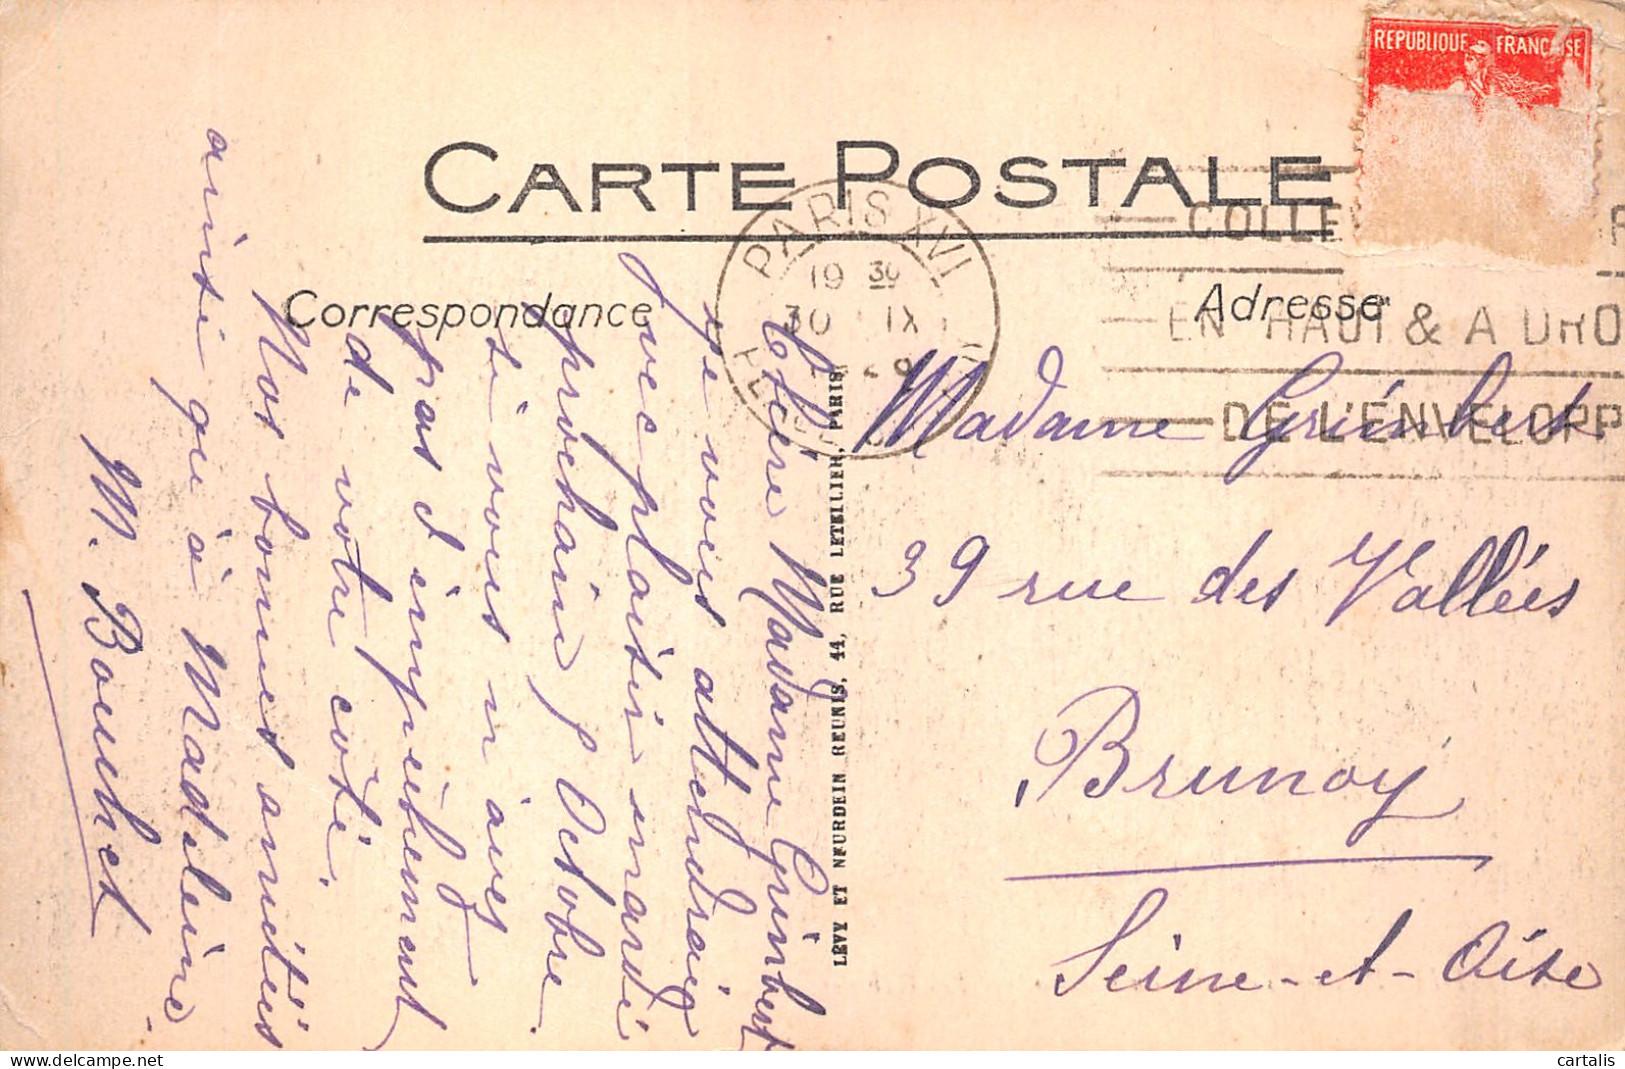 RÉPUBLIQUE FRANÇAISE
CARTE POSTALE
PARIS XVI
19 30
30 IX
COLLE
EN HAUT & A DRO
DE L'ENVELOPP
Correspondance
Adresse
Chère Madame Grimbert
je vous attendrai
avec plaisir mardi
prochain 8 Octobre
si vous n'avez
pas d'empêchement
de votre côté.
Nos bonnes amitiés
ainsi qu'à Madeleine.
M. Bouchet
LÉVY ET NEURDEIN RÉUNIS, 44, RUE LETELLIER, PARIS
Madame Grimbert
39 rue des Vallées
Brunoy
Seine-et-Oise
www.delcampe.net
cartalis